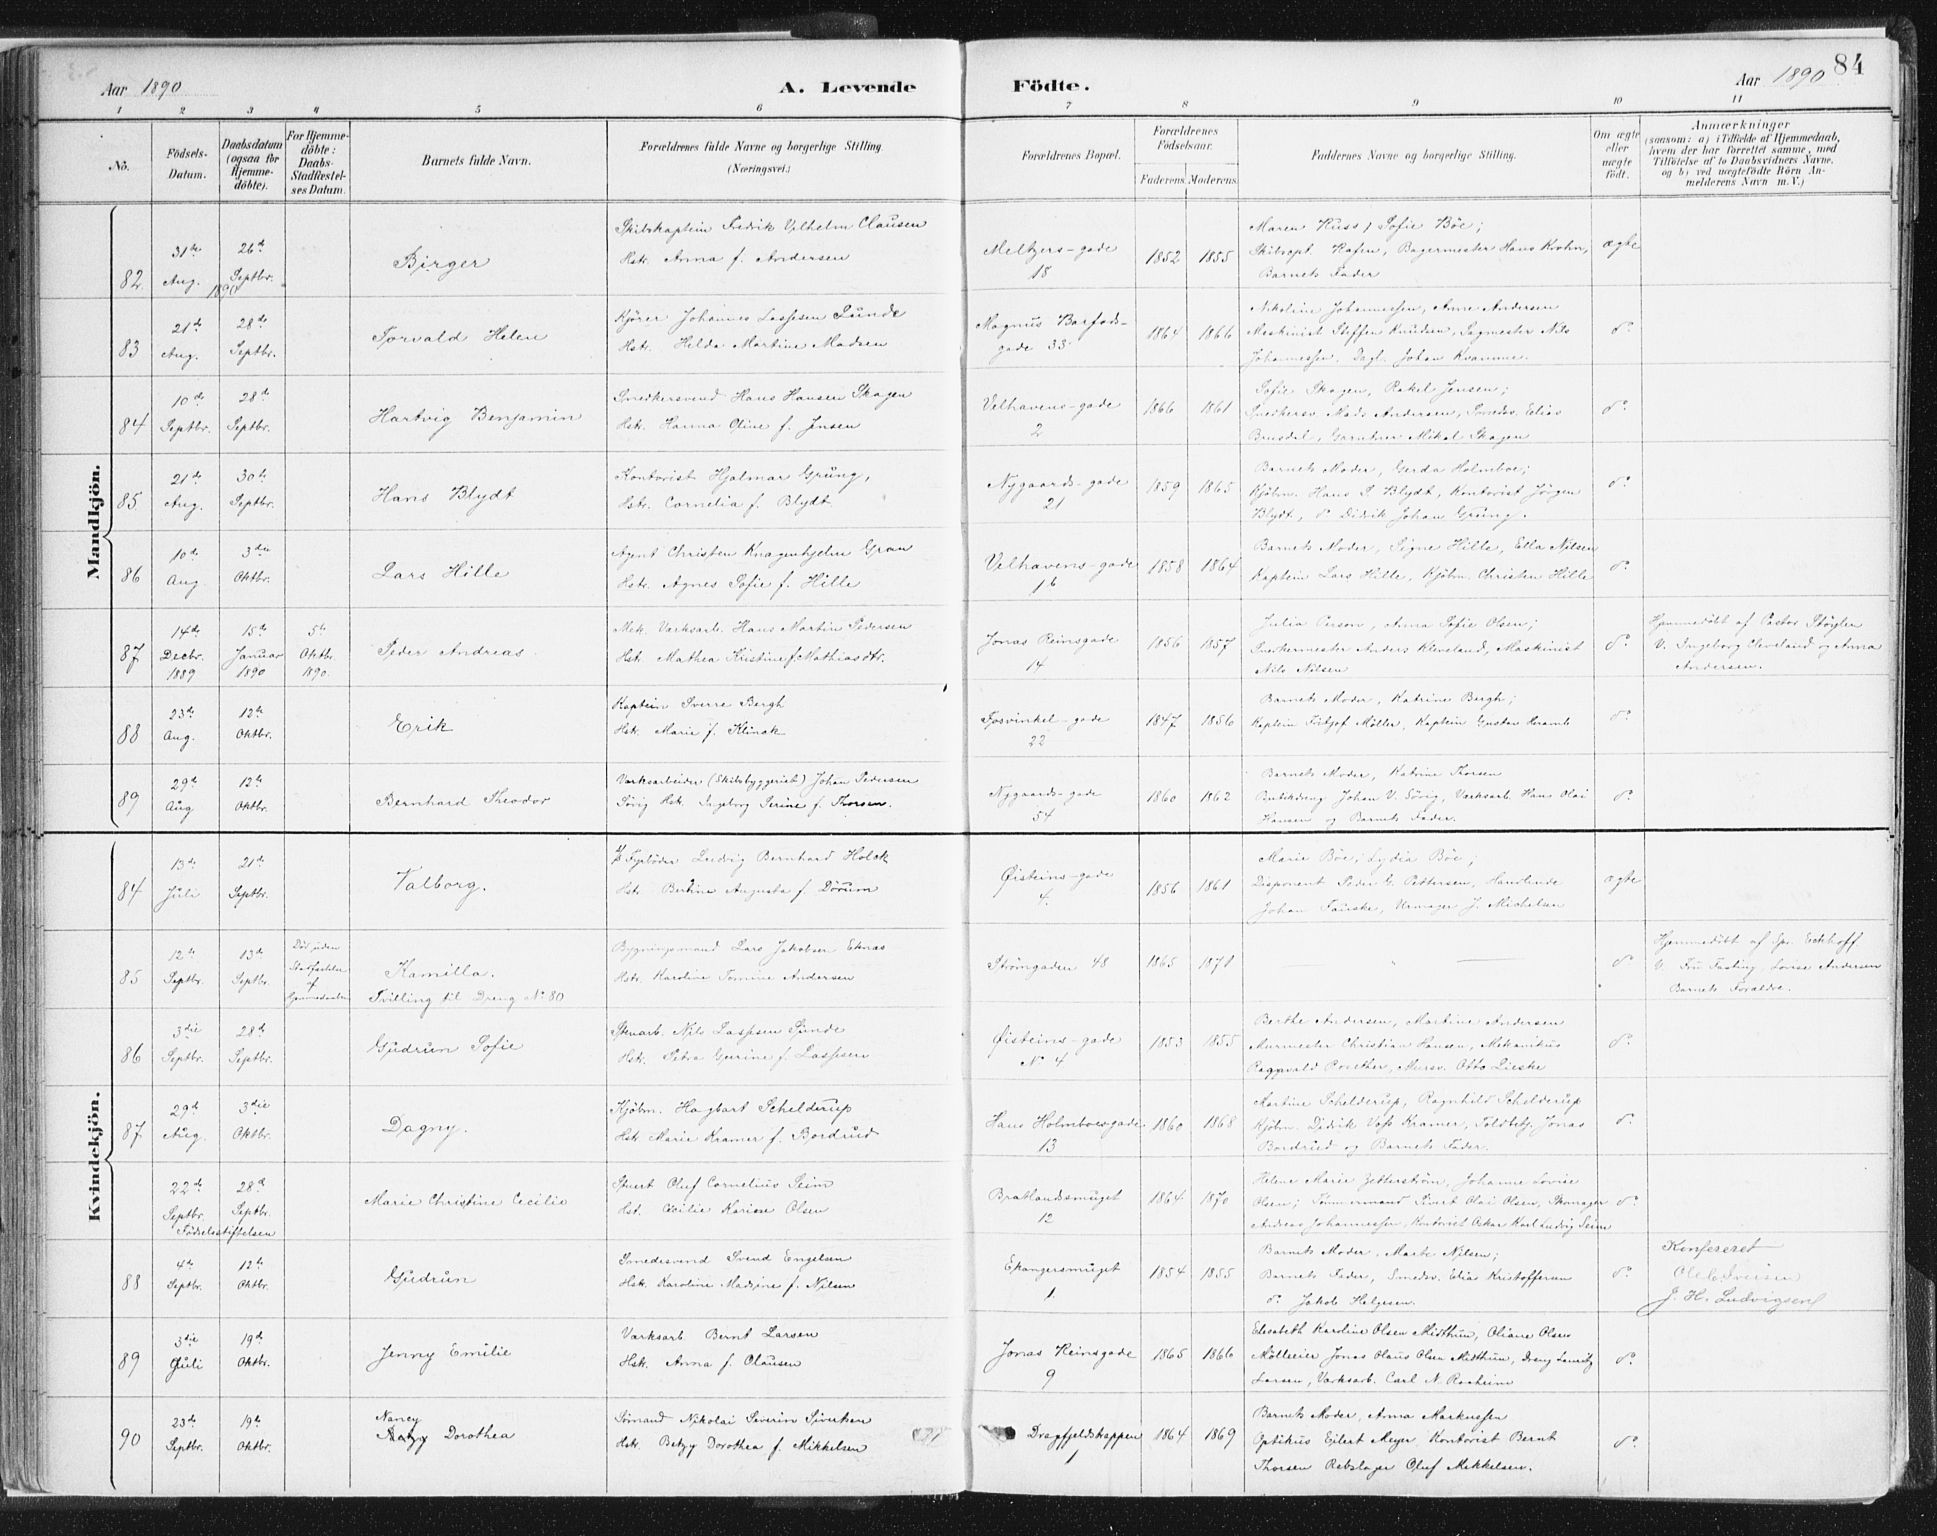 84
Aar 1890
A. Levende Födte.
Aar 1890
1 2 3 4 5 6 7 8 9 10 11
No.
Födsels-Datum.
Daabsdatum (ogsaa for Hjemme-döbte).
For Hjemme-döbte: Daabs-Stadfæstel-ses Datum.
Barnets fulde Navn.
Forældrenes fulde Navne og borgerlige Stilling (Næringsvei.)
Forældrenes Bopæl.
Forældrenes Födselsaar.
Faderens. Moderens.
Faddernes Navne og borgerlige Stilling.
Om ægte eller uægte födt.
Anmærkninger
(saasom: a) i Tilfælde af Hjemmedaab,
hvem der har forrettet samme, med
Tilföielse af to Daabsvidners Navne,
og b) ved uægtefödte Börn An-
melderens Navn m. V.)
Mandkjön.
82 31te Aug. 1890 26de Septbr. Birger
Skibskaptein Fredrik Vilhelm Clausen
Hstr. Anna f. Andersen
Meltzers-gade 18 1852 1855
Maren Huss, Sofie Böe;
Skibscpt. Hafen, Bagermester Hans Krohn,
Barnets Fader
ægte
83 21de Aug. 28de Septbr. Torvald Helen
Kjörer Johannes Lassesen Sunde
Hst. Helda Martine Madsen
Magnus Barfods-gade 33 1864 1866
Nikoline Johannessen, Anne Andersen
Maskinist Steffen Knudsen, Sagmester Nils
Johannessen, Dagl. Johan Kvamme.
do
84 10de Septbr. 28de Septbr. Hartvig Benjamin
Snedkersvend Hans Hansen Skagen
Hstr. Hanna Oline f. Jensen
Velhavens-gade 2 1866 1861
Sofie Skagen, Rakel Jensen;
Snedkersv. Mads Andersen, Smeds. Elias
Brusdal, Gartner Mikal Skagen
do
85 21de Aug. 30te Septbr. Hans Blydt
Kontorist Hjalmar Grüng,
Hstr. Cornelia f. Blydt
Nygaards-gade 21 1859 1865
Barnets Moder, Gerda Holmboe;
Kjöbm. Hans S. Blydt, Kontorist Jörgen
Blydt, do Didrik Johan Grüng.
do
86 10de Aug. 3die Oktbr. Lars Hille
Agent Christen Knagenhjelm Gran
Hstr. Agnes Sofie f. Hille
Velhavens-gade 16 1858 1864
Barnets Moder, Signe Hille, Ella Nilsen
Kaptein Lars Hille, Kjöbm. Christen Hille
do
87 14de Decbr. 1889 15de Januar 1890 5te Oktbr. 1890. Peder Andreas
Mek. Værksarb. Hans Martin Pedersen
Hst. Mathea Kristine f. Mathiasdtr.
Jonas Reinsgade 14 1856 1857
Julia Person, Anna Sofie Olsen;
Snedkermester Anders Kleveland, Maskinist
Nils Nilsen
do
Hjemmedöbt af Pastor Stöylen
V. Ingeborg Cleveland og Anna
Andersen.
88 23de Aug. 12te Oktbr. Erik
Kaptein Sverre Bergh
Hst. Marie f. Klinck
Fosvinkel-gade 22 1847 1856
Barnets Moder, Katrine Bergh;
Kaptein Fritjof Möller, Kaptein Gustav Heramb
do
89 29de Aug 12te Oktbr. Bernhard Theodor
Værksarbeider (Skibsbyggeriet) Johan Pedersen
Sövig Hst. Ingeborg Serine f. Thorsen.
Nygaards-gade 54 1860 1862
Barnets Moder, Katrine Thorsen
Butikdreng Johan V. Sövig, Værksarb. Hans Olai
Hansen og Barnets Fader.
do
Kvindekjön.
84 13de Juli 21de Septbr. Valborg.
Fyrböder Ludvig Bernhard Holck
Hst. Bertine Augusta f. Dörum
Øisteins-gade 4. 1856 1861
Marie Böe, Lydia Böe;
Disponent Peder G. Pettersen, Handlende
Johan Fauske, Urmager J. Michelsen
ægte
85 12te Septbr. 13de Septbr. Död uden Stadfæstelse af Hjemmedaaben
Kamilla.
Tvilling til Dreng No. 80
Bygningsmand Lars Jakobsen Eknas
Hstr. Karoline Tomine Andersen
Strömgaden 48 1865 1871
— " —
do
Hjemmedöbt af Spr. Eckhoff
V. Fru Fasting, Lovise Andersen
Barnets Forældre.
86 3die Septbr. 28de Septbr. Gudrun Sofie
Stenarb. Nils Lassesen Sunde
Hst. Petra Gurine f. Lassesen
Øisteins-gade No 4 1853 1855
Berthe Andersen, Martine Andersen
Murmester Christian Hansen, Mekanikus
Ragnvald Roether, Mursv. Otto Lieske
do
87 29de Aug. 3die Oktbr. Dagny.
Kjöbm. Hagbart Schelderup
Hst. Marie Kramer f. Bordrud
Hans Holmboesgade 13 1860 1868
Martine Schelderup, Ragnhild Schelderup
Kjöbm. Didrik Voss Kramer, Toldbetj. Jonas
Bordrud og Barnets Fader.
do
22de Septbr. 28de Septbr. Födselsstiftelsen
Marie Christine Cecilie
Stuert Oluf Cornelius Seim
Hst. Cecilie Karine Olsen
Bratlandsmuget 12 1864 1870
Helene Marie Zetterström, Johanne Lovise
Olsen; Tömmermand Sivert Olai Olsen, Skomager
Andreas Johannessen, Kontorist Oskar Karl Ludvig Seim
do
88 4de Septbr. 12te Oktbr. Gudrun
Smedesvend Svend Engelsen
Hst. Karoline Madsine f. Nilsen
Ekangersmuget 1. 1854 1855
Barnets Moder, Marte Nilsen;
Barnets Fader, Smedsv. Elias Kristoffersen
do Jakob Helgesen.
do
Konfereret
J. H. Ludvigsen
89 3die Juli 19de Oktbr. Jenny Emilie
Værksarb Bernt Larsen
Hsk. Anna f. Clausen
Jonas Reinsgade 9 1865 1866
Elisabeth Karoline Olsen Midthun, Oliane Olsen
Mölleeier Jonas Olaus Olsen Midthun, Dreng Lauritz
Larsen, Værksarb. Carl N. Roeheim
do
90 23de Septbr. 19de Oktbr. Nancy Dorothea
Sömand Nikolai Severin Sivertsen
Hstr. Betzy Dorothea f. Mikkelsen
Dragefjeldstrappen 1 1864 1869
Barnets Moder, Anna Markussen
Optikus Eilert Meyer, Kontorist Bernt
Thorsen Rebslager Oluf Mikkelsen.
do